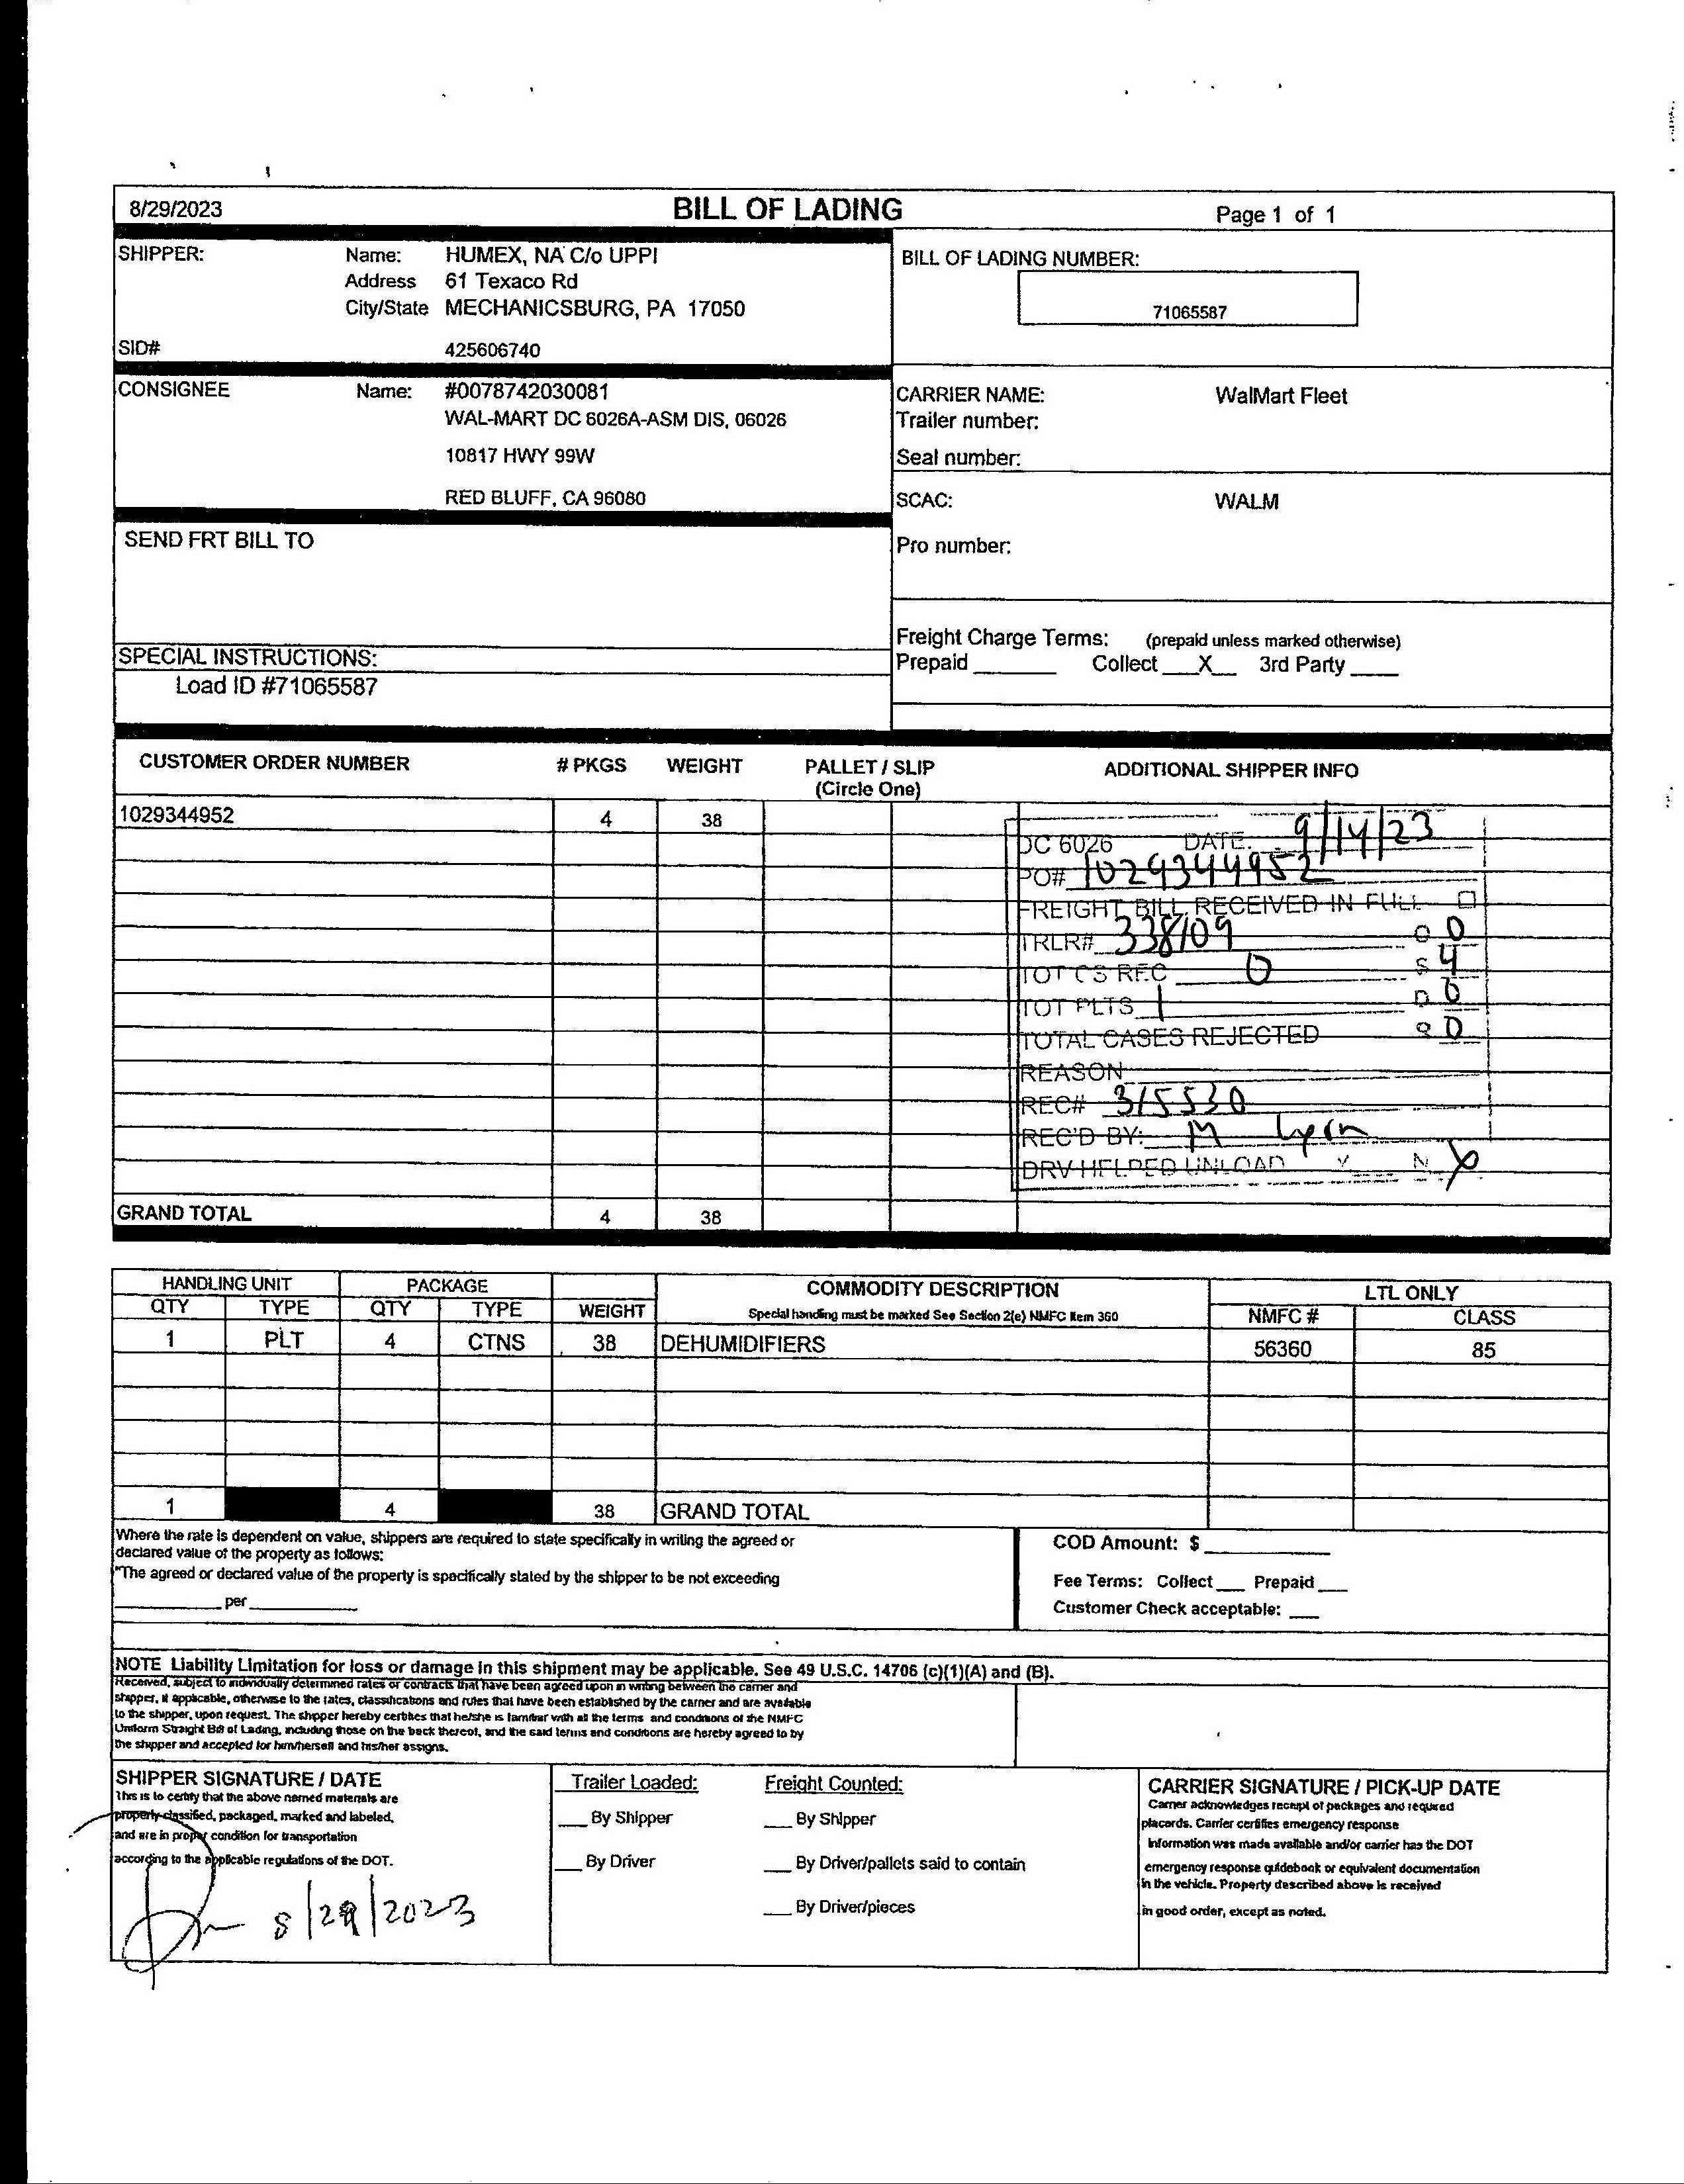 8/29/2023 BILL OF LADING Page 1 of 1
SHIPPER: Name: HUMEX, NA C/o UPPI
Address 61 Texaco Rd
City/State MECHANICSBURG, PA 17050
SID# 425606740
BILL OF LADING NUMBER:
71065587
CONSIGNEE Name: #0078742030081
WAL-MART DC 6026A-ASM DIS, 06026
10817 HWY 99W
RED BLUFF, CA 96080
CARRIER NAME: WalMart Fleet
Trailer number:
Seal number:
SCAC: WALM
Pro number:
SEND FRT BILL TO
Freight Charge Terms: (prepaid unless marked otherwise)
Prepaid ______ Collect __X__ 3rd Party ____
SPECIAL INSTRUCTIONS:
Load ID #71065587
CUSTOMER ORDER NUMBER # PKGS WEIGHT PALLET / SLIP ADDITIONAL SHIPPER INFO
(Circle One)
1029344952 4 38
DC 6026 DATE. 9/14/23
PO# 1029344952
FREIGHT BILL RECEIVED IN FULL
TRLR# 338109 O 0
TOT CS REC 0 S 4
TOT PLTS 1 D 0
TOTAL CASES REJECTED R 0
REASON
REC# 315530
REC'D BY: M
DRV HELPED UNLOAD Y N X
GRAND TOTAL 4 38
HANDLING UNIT PACKAGE COMMODITY DESCRIPTION LTL ONLY
QTY TYPE QTY TYPE WEIGHT Special handling must be marked See Section 2(e) NMFC Item 360 NMFC # CLASS
1 PLT 4 CTNS 38 DEHUMIDIFIERS 56360 85
1 4 38 GRAND TOTAL
Where the rate is dependent on value, shippers are required to state specifically in writing the agreed or
declared value of the property as follows:
"The agreed or declared value of the property is specifically stated by the shipper to be not exceeding
______ per ______
COD Amount: $ ______
Fee Terms: Collect ___ Prepaid ___
Customer Check acceptable: ___
NOTE Liability Limitation for loss or damage in this shipment may be applicable. See 49 U.S.C. 14706 (c)(1)(A) and (B).
Received, subject to individually determined rates or contracts that have been agreed upon in writing between the carrier and
shipper, if applicable, otherwise to the rates, classifications and rules that have been established by the carrier and are available
to the shipper, upon request. The shipper hereby certifies that he/she is familiar with all the terms and conditions of the NMFC
Uniform Straight Bill of Lading, including those on the back thereof, and the said terms and conditions are hereby agreed to by
the shipper and accepted for him/herself and his/her assigns.
SHIPPER SIGNATURE / DATE
This is to certify that the above named materials are
properly classified, packaged, marked and labeled,
and are in proper condition for transportation
according to the applicable regulations of the DOT.
8/29/2023
Trailer Loaded:
___ By Shipper
___ By Driver
Freight Counted:
___ By Shipper
___ By Driver/pallets said to contain
___ By Driver/pieces
CARRIER SIGNATURE / PICK-UP DATE
Carrier acknowledges receipt of packages and required
placards. Carrier certifies emergency response
information was made available and/or carrier has the DOT
emergency response guidebook or equivalent documentation
in the vehicle. Property described above is received
in good order, except as noted.